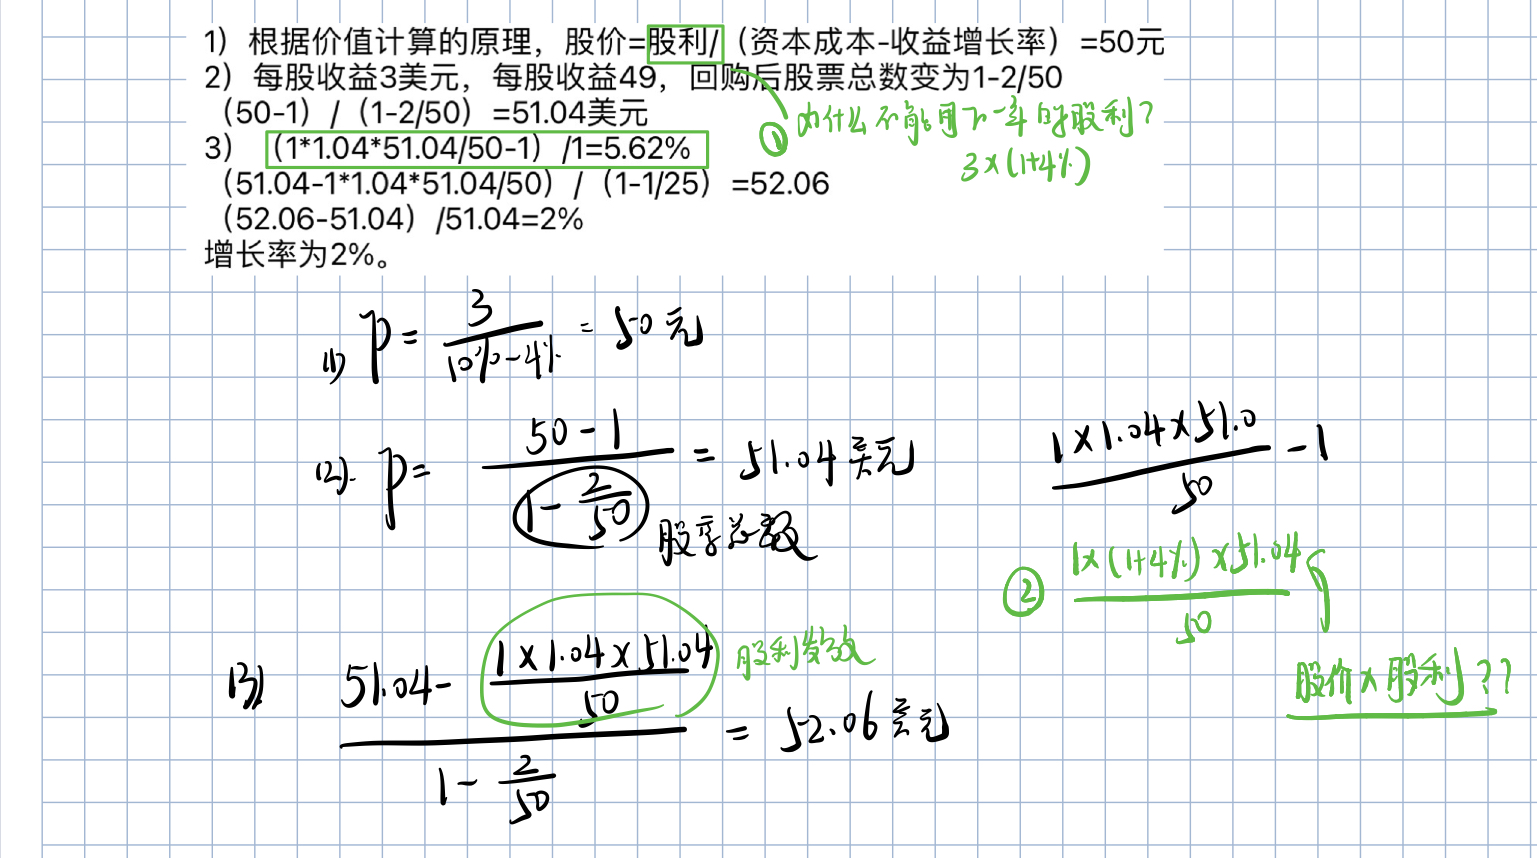 1）根据价值计算的原理，股价=股利/（资本成本-收益增长率）=50元
2）每股收益3美元，每股收益49，回购后股票总数变为1-2/50
（50-1）/（1-2/50）=51.04美元
① 为什么不能用下一年的股利？
3×(1+4%)
3）（1*1.04*51.04/50-1）/1=5.62%
（51.04-1*1.04*51.04/50）/（1-1/25）=52.06
（52.06-51.04）/51.04=2%
增长率为2%。
(1) P= 3/(10%-4%) = 50元
(2). P= (50-1)/(1-2/50) = 51.04美元
股票总数
(1×1.04×51.0)/50 -1
② (1×(1+4%)×51.04)/50
股价×股利??
(3) (51.04-(1×1.04×51.04)/50)/(1-2/50) = 52.06美元
股利